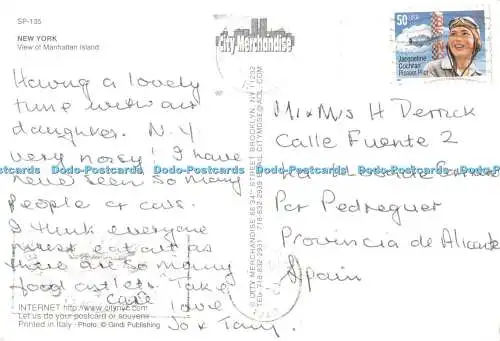 SP-135
NEW YORK
View of Manhattan Island
Having a lovely
time with our
daughter. N.Y
very noisy! I have
never seen so many
people or cars.
I think everyone
must eat out as
there are so many
food outlets. Take
care love
Jo x Tony.
INTERNET http://www.citynyc.com
Let us do your postcard or souvenir
Printed in Italy · Photo: © Gindi Publishing
City Merchandise
© CITY MERCHANDISE 68 34th STREET BROOKLYN, NY 11232
TEL: 718 832 2931 718-832-2939 EMAIL: CITYMDSE@AOL.COM
50 USA
Jacqueline
Cochran
Pioneer Pilot
Mr x Mrs H Derrick
Calle Fuente 2
Par Pedreguer
Provincia de Alicante
Spain
Dodo-Postcards Dodo-Postcards Dodo-Postcards Dodo-Postcards